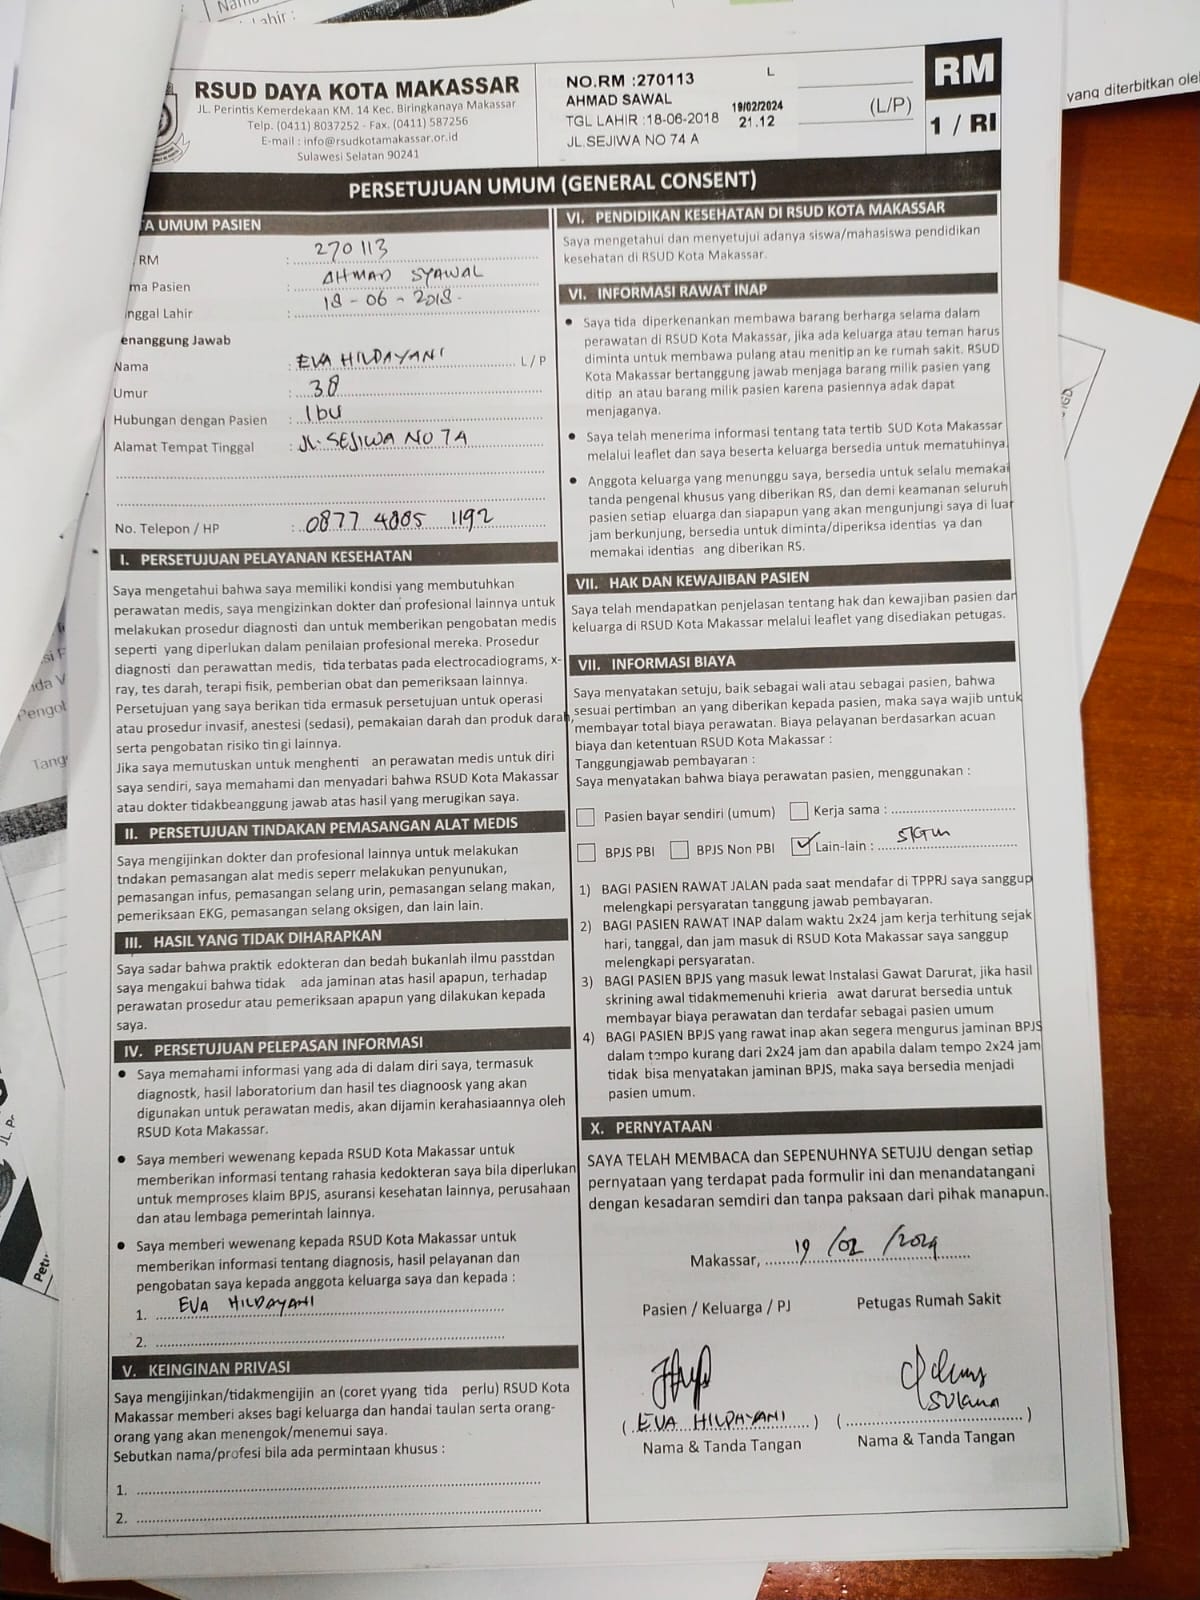 Nam
Lahir :
yang diterbitkan ole
RSUD DAYA KOTA MAKASSAR
JL. Perintis Kemerdekaan KM. 14 Kec. Biringkanaya Makassar
Telp. (0411) 8037252 - Fax. (0411) 587256
E-mail : info@rsudkotamakassar.or.id
Sulawesi Selatan 90241
NO.RM :270113 L
AHMAD SAWAL
TGL LAHIR :18-06-2018
JL.SEJIWA NO 74 A
19/02/2024
21.12
(L/P)
RM
1 / RI
PERSETUJUAN UMUM (GENERAL CONSENT)
A UMUM PASIEN
RM : 270113
ma Pasien : AHMAD SYAWAL
nggal Lahir : 18-06-2018.
enanggung Jawab
Nama : EVA HILDAYANI L / P
Umur : 38
Hubungan dengan Pasien : Ibu
Alamat Tempat Tinggal : JL. SEJIWA NO 74
No. Telepon / HP : 0877 4885 1192
I. PERSETUJUAN PELAYANAN KESEHATAN
Saya mengetahui bahwa saya memiliki kondisi yang membutuhkan
perawatan medis, saya mengizinkan dokter dan profesional lainnya untuk
melakukan prosedur diagnosti dan untuk memberikan pengobatan medis
seperti yang diperlukan dalam penilaian profesional mereka. Prosedur
diagnosti dan perawattan medis, tida terbatas pada electrocadiograms, x-
ray, tes darah, terapi fisik, pemberian obat dan pemeriksaan lainnya.
Persetujuan yang saya berikan tida ermasuk persetujuan untuk operasi
atau prosedur invasif, anestesi (sedasi), pemakaian darah dan produk darah,
serta pengobatan risiko tin gi lainnya.
Jika saya memutuskan untuk menghenti an perawatan medis untuk diri
saya sendiri, saya memahami dan menyadari bahwa RSUD Kota Makassar
atau dokter tidakbeanggung jawab atas hasil yang merugikan saya.
II. PERSETUJUAN TINDAKAN PEMASANGAN ALAT MEDIS
Saya mengijinkan dokter dan profesional lainnya untuk melakukan
tndakan pemasangan alat medis seperr melakukan penyunukan,
pemasangan infus, pemasangan selang urin, pemasangan selang makan,
pemeriksaan EKG, pemasangan selang oksigen, dan lain lain.
III. HASIL YANG TIDAK DIHARAPKAN
Saya sadar bahwa praktik edokteran dan bedah bukanlah ilmu passtdan
saya mengakui bahwa tidak ada jaminan atas hasil apapun, terhadap
perawatan prosedur atau pemeriksaan apapun yang dilakukan kepada
saya.
IV. PERSETUJUAN PELEPASAN INFORMASI
• Saya memahami informasi yang ada di dalam diri saya, termasuk
diagnostk, hasil laboratorium dan hasil tes diagnoosk yang akan
digunakan untuk perawatan medis, akan dijamin kerahasiaannya oleh
RSUD Kota Makassar.
• Saya memberi wewenang kepada RSUD Kota Makassar untuk
memberikan informasi tentang rahasia kedokteran saya bila diperlukan
untuk memproses klaim BPJS, asuransi kesehatan lainnya, perusahaan
dan atau lembaga pemerintah lainnya.
• Saya memberi wewenang kepada RSUD Kota Makassar untuk
memberikan informasi tentang diagnosis, hasil pelayanan dan
pengobatan saya kepada anggota keluarga saya dan kepada :
1. EVA HILDAYANI
2.
V. KEINGINAN PRIVASI
Saya mengijinkan/tidakmengijin an (coret yyang tida perlu) RSUD Kota
Makassar memberi akses bagi keluarga dan handai taulan serta orang-
orang yang akan menengok/menemui saya.
Sebutkan nama/profesi bila ada permintaan khusus :
1.
2.
VI. PENDIDIKAN KESEHATAN DI RSUD KOTA MAKASSAR
Saya mengetahui dan menyetujui adanya siswa/mahasiswa pendidikan
kesehatan di RSUD Kota Makassar.
VI. INFORMASI RAWAT INAP
• Saya tida diperkenankan membawa barang berharga selama dalam
perawatan di RSUD Kota Makassar, jika ada keluarga atau teman harus
diminta untuk membawa pulang atau menitip an ke rumah sakit. RSUD
Kota Makassar bertanggung jawab menjaga barang milik pasien yang
ditip an atau barang milik pasien karena pasiennya adak dapat
menjaganya.
• Saya telah menerima informasi tentang tata tertib SUD Kota Makassar
melalui leaflet dan saya beserta keluarga bersedia untuk mematuhinya.
• Anggota keluarga yang menunggu saya, bersedia untuk selalu memakai
tanda pengenal khusus yang diberikan RS, dan demi keamanan seluruh
pasien setiap eluarga dan siapapun yang akan mengunjungi saya di luar
jam berkunjung, bersedia untuk diminta/diperiksa identias ya dan
memakai identias ang diberikan RS.
VII. HAK DAN KEWAJIBAN PASIEN
Saya telah mendapatkan penjelasan tentang hak dan kewajiban pasien dan
keluarga di RSUD Kota Makassar melalui leaflet yang disediakan petugas.
VII. INFORMASI BIAYA
Saya menyatakan setuju, baik sebagai wali atau sebagai pasien, bahwa
sesuai pertimban an yang diberikan kepada pasien, maka saya wajib untuk
membayar total biaya perawatan. Biaya pelayanan berdasarkan acuan
biaya dan ketentuan RSUD Kota Makassar :
Tanggungjawab pembayaran :
Saya menyatakan bahwa biaya perawatan pasien, menggunakan :
Pasien bayar sendiri (umum) Kerja sama :
BPJS PBI BPJS Non PBI Lain-lain :
1) BAGI PASIEN RAWAT JALAN pada saat mendafar di TPPRJ saya sanggup
melengkapi persyaratan tanggung jawab pembayaran.
2) BAGI PASIEN RAWAT INAP dalam waktu 2x24 jam kerja terhitung sejak
hari, tanggal, dan jam masuk di RSUD Kota Makassar saya sanggup
melengkapi persyaratan.
3) BAGI PASIEN BPJS yang masuk lewat Instalasi Gawat Darurat, jika hasil
skrining awal tidakmemenuhi krieria awat darurat bersedia untuk
membayar biaya perawatan dan terdafar sebagai pasien umum
4) BAGI PASIEN BPJS yang rawat inap akan segera mengurus jaminan BPJS
dalam tempo kurang dari 2x24 jam dan apabila dalam tempo 2x24 jam
tidak bisa menyatakan jaminan BPJS, maka saya bersedia menjadi
pasien umum.
X. PERNYATAAN
SAYA TELAH MEMBACA dan SEPENUHNYA SETUJU dengan setiap
pernyataan yang terdapat pada formulir ini dan menandatangani
dengan kesadaran semdiri dan tanpa paksaan dari pihak manapun.
Makassar, 19 /02 /2024
Pasien / Keluarga / PJ Petugas Rumah Sakit
(EVA HILDAYANI) (Sulana)
Nama & Tanda Tangan Nama & Tanda Tangan